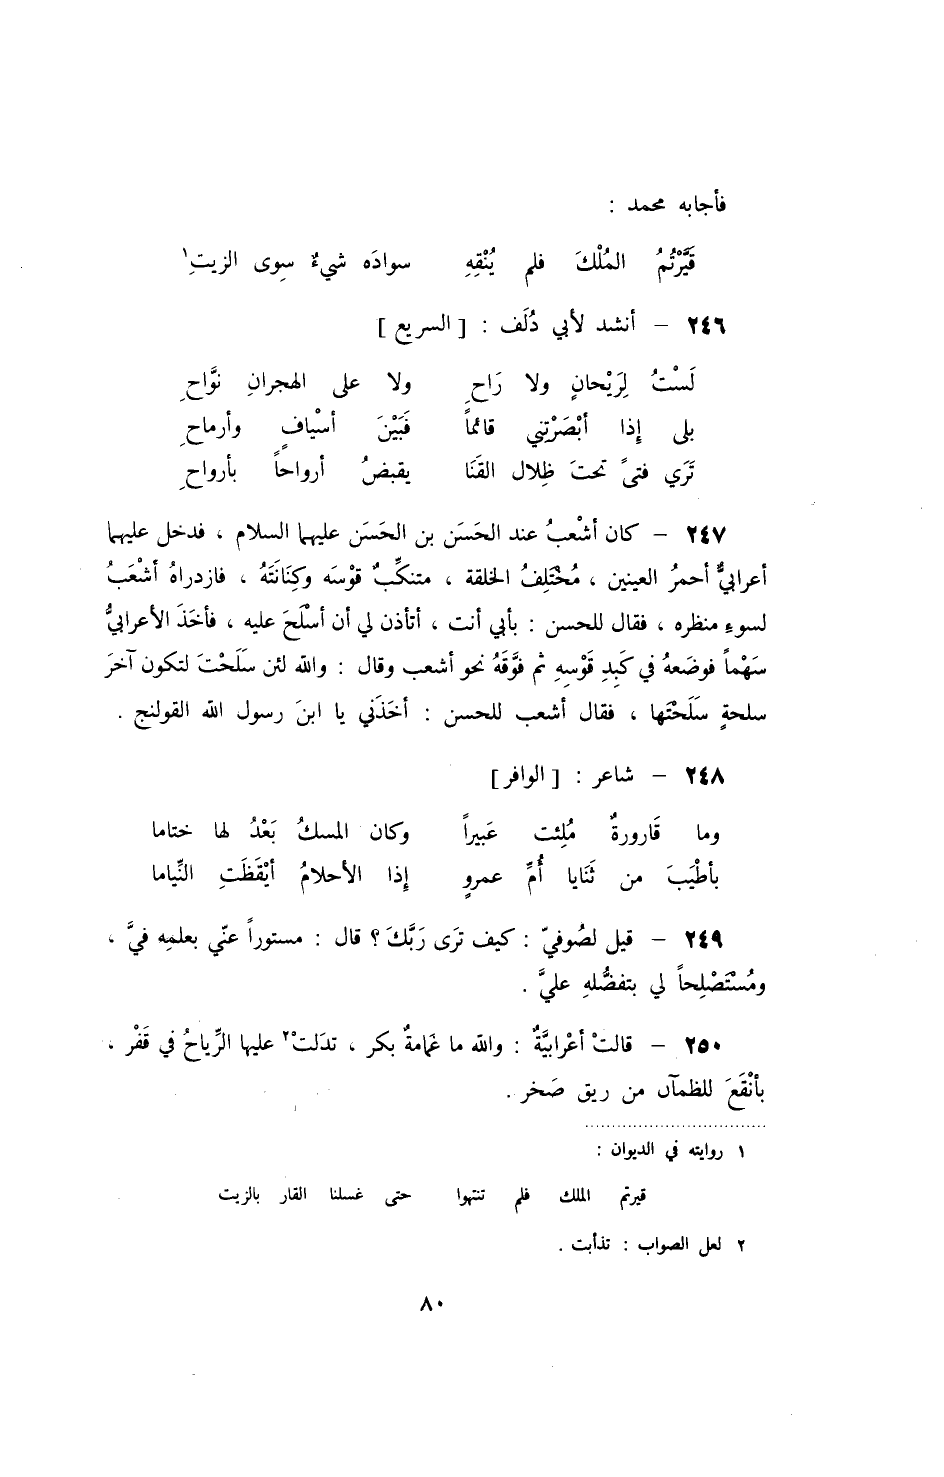 فأجابه محمد :
قَيَّرْتُمُ المُلْكَ فلم يُنْقِهِ سوادَه شيءٌ سِوى الزيتِ١
٢٤٦ – أنشد لأبي دُلَف : [ السريع ]
لَسْتُ لِرَيْحانٍ ولا رَاحِ ولا على الهجرانِ نوَّاحِ
بلى إِذا أبْصَرْتِني قائماً فَبَيْنَ أسْيافٍ وأرماحِ
تَرَي فتىً تحتَ ظِلال القَنَا يقبضُ أرواحاً بأرواحِ
٢٤٧ – كان أشْعبُ عند الحَسَن بن الحَسَن عليهما السلام ، فدخل عليهما
أعرابيٌّ أحمرُ العينين ، مُخْتَلِفُ الخلقة ، متنكِّبٌ قوْسَه وكِنَانَتَهُ ، فازدراهُ أشْعَبُ
لسوءِ منظره ، فقال للحسن : بأبي أنت ، أتأذن لي أن أسْلَحَ عليه ، فأخَذَ الأعرابيُّ
سَهْماً فوضَعهُ في كَبِدِ قَوْسِهِ ثم فوَّقَهُ نحو أشعب وقال : والله لئن سَلَحْتَ لتكون آخرَ
سلحةٍ سَلَحْتَها ، فقال أشعب للحسن : أخَذَني يا ابنَ رسول الله القولنج .
٢٤٨ – شاعر : [ الوافر ]
وما قَارورةٌ مُلِئت عَبيراً وكان المسكُ بَعْدُ لها ختاما
بأطْيَبَ من ثَنَايا أُمِّ عمروٍ إذا الأحلامُ أيْقَظَتِ النِّياما
٢٤٩ – قيل لصُوفيّ : كيف ترَى رَبَّكَ ؟ قال : مستوراً عنّي بعلمِه فيَّ ،
ومُسْتَصْلِحاً لي بتفضُّلهِ عليَّ .
٢٥٠ – قالتْ أعْرابيَّةٌ : والله ما غمامةٌ بكر ، تدَلتْ٢ عليها الرِّياحُ في قَفْر ،
بأنْقَعَ للظمآن من ريق صَخر .
١ روايته في الديوان :
قيرتم الملك فلم تنتهوا حتى غسلنا القار بالزيت
٢ لعل الصواب : تذأبت .
٨٠